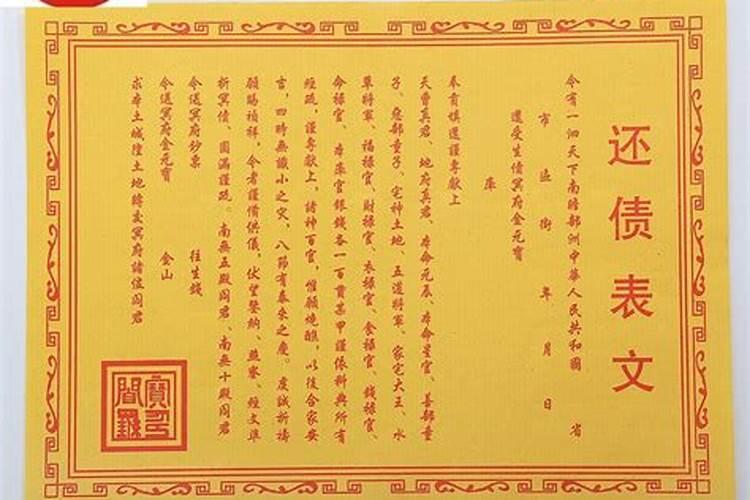 还债表文
今有一泗天下南瞻部洲中華人民共和國 省
市 區 街 年 月 日
還受生債冥府金元寶
庫
奉有填還謹專獻上
天曹真君、地府真君、本命元辰、本命星官、善部童
子、惡部童子、宅神土地、五道將軍、家宅大王、水
草將軍、福禄官、財禄官、衣禄官、食禄官、錢禄官、
命禄官、本庫官銀錢各一百貫某甲謹依科典所有
經疏，謹專獻上，諸神百官，惟願燒醮，以後合家安
言，四時無讖小之災，八節有泰來之慶。虔誠祈禱
願賜禎祥，令者謹備供儀，伏望鑒納、照察、經文準
折冥債、圓滿謹疏。南無五殿阎君、南無十殿阎君
令送冥府鈔票 往生錢
令送冥府金元寶 金山
求本土城隍土地轉交冥府諸位阎君